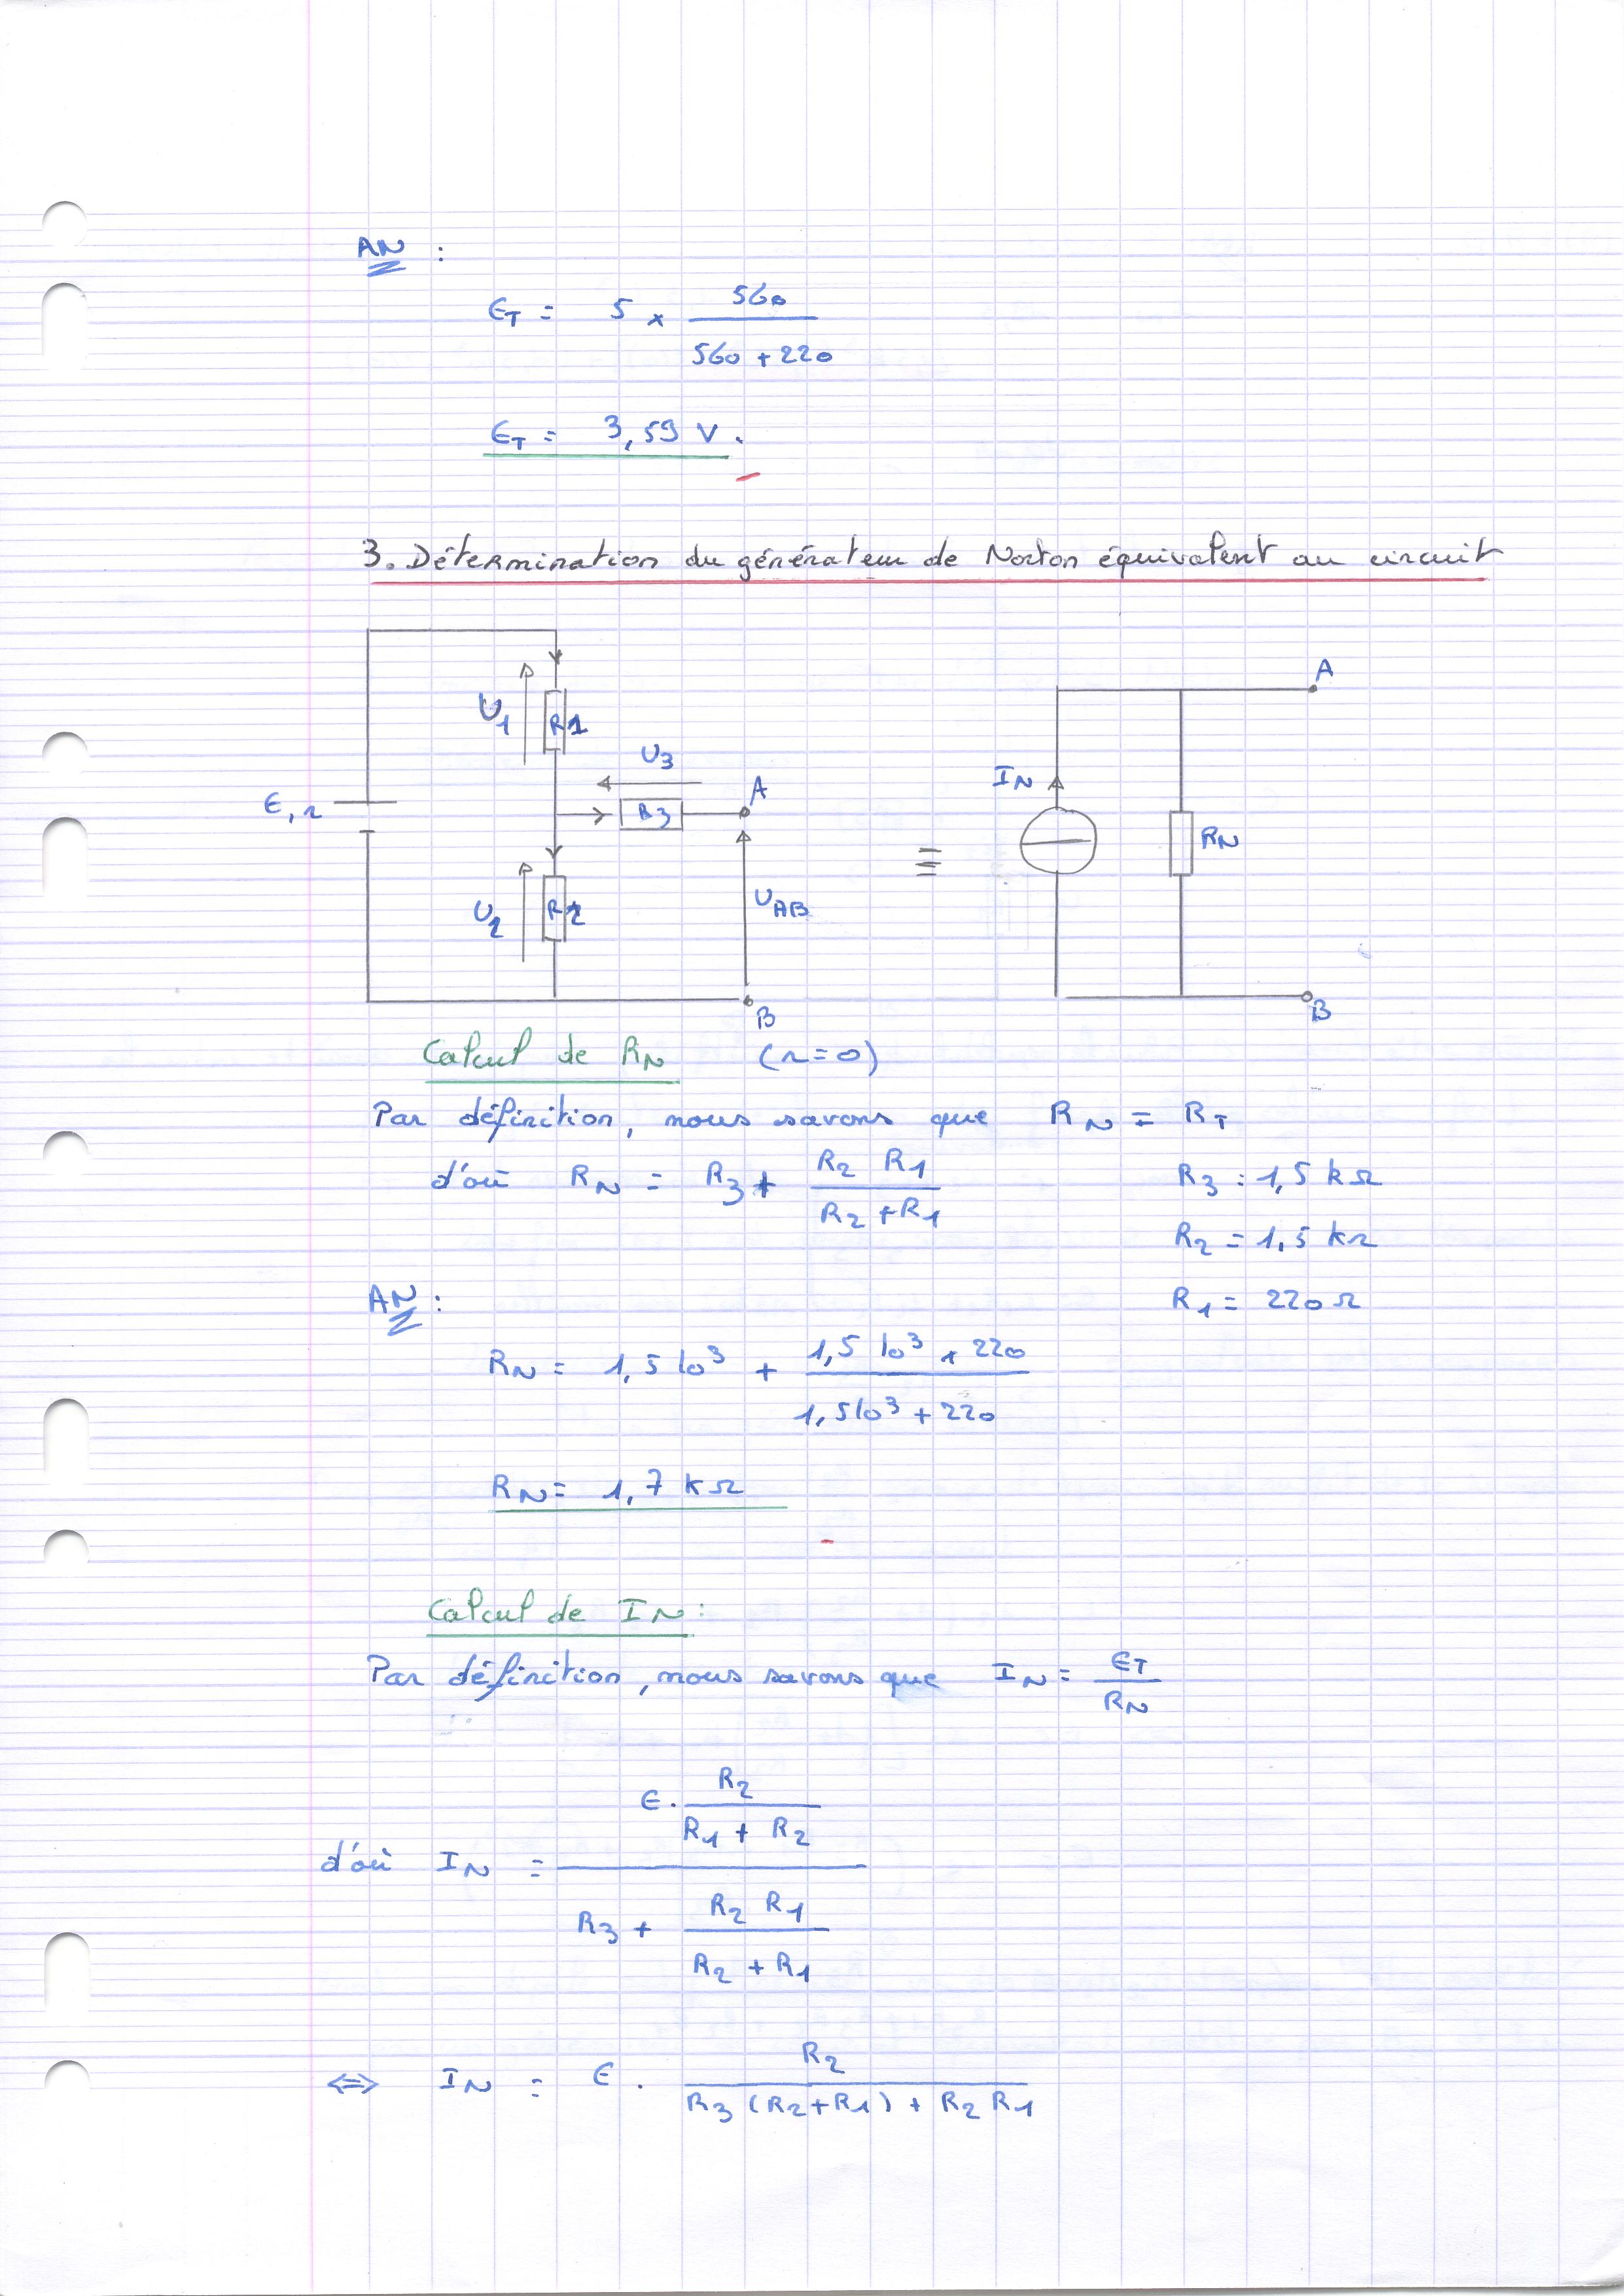 AN :
ET = 5 x 560 / (560 + 220)
ET = 3,59 V.
3. Détermination du générateur de Norton équivalent au circuit
A
U1 R1
U3
IN
E, r
R3
A
RN
≡
U2 R2
UAB
B
B
Calcul de RN (r=0)
Par définition, nous savons que RN = RT
d'où RN = R3 + R2 R1 / (R2 + R1)
R3 : 1,5 kΩ
R2 = 1,5 kΩ
R1 = 220 Ω
AN :
RN = 1,5 10³ + 1,5 10³ x 220 / (1,5 10³ + 220)
RN = 1,7 kΩ
Calcul de IN :
Par définition, nous savons que IN = ET / RN
d'où IN = (E . R2 / (R1 + R2)) / (R3 + R2 R1 / (R2 + R1))
<=> IN = E . R2 / (R3 (R2+R1) + R2 R1)